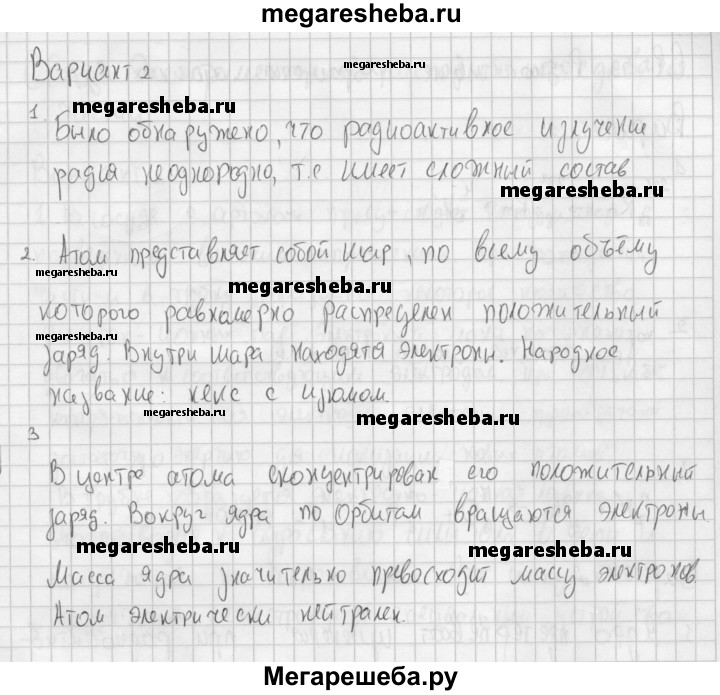 megaresheba.ru
Вариант 2
megaresheba.ru
1.
megaresheba.ru
Было обнаружено, что радиоактивное излучение
радия неоднородно, т.е имеет сложный состав
megaresheba.ru
2. Атом представляет собой шар, по всему объёму
megaresheba.ru
megaresheba.ru
которого равномерно распределен положительный
megaresheba.ru
заряд. Внутри шара находятся электроны. Народное
название: кекс с изюмом.
megaresheba.ru
megaresheba.ru
3
В центре атома сконцентрирован его положительный
заряд. Вокруг ядра по орбитам вращаются электроны
megaresheba.ru
megaresheba.ru
Масса ядра значительно превосходит массу электронов
Атом электрически нейтрален.
megaresheba.ru
Мегарешеба.ру